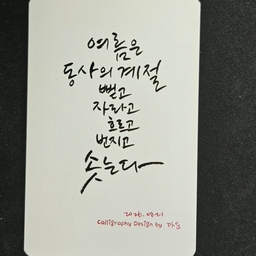 여름은
동사의 계절
뻗고
자라고
흐르고
번지고
솟는다
Calligraphy Design by